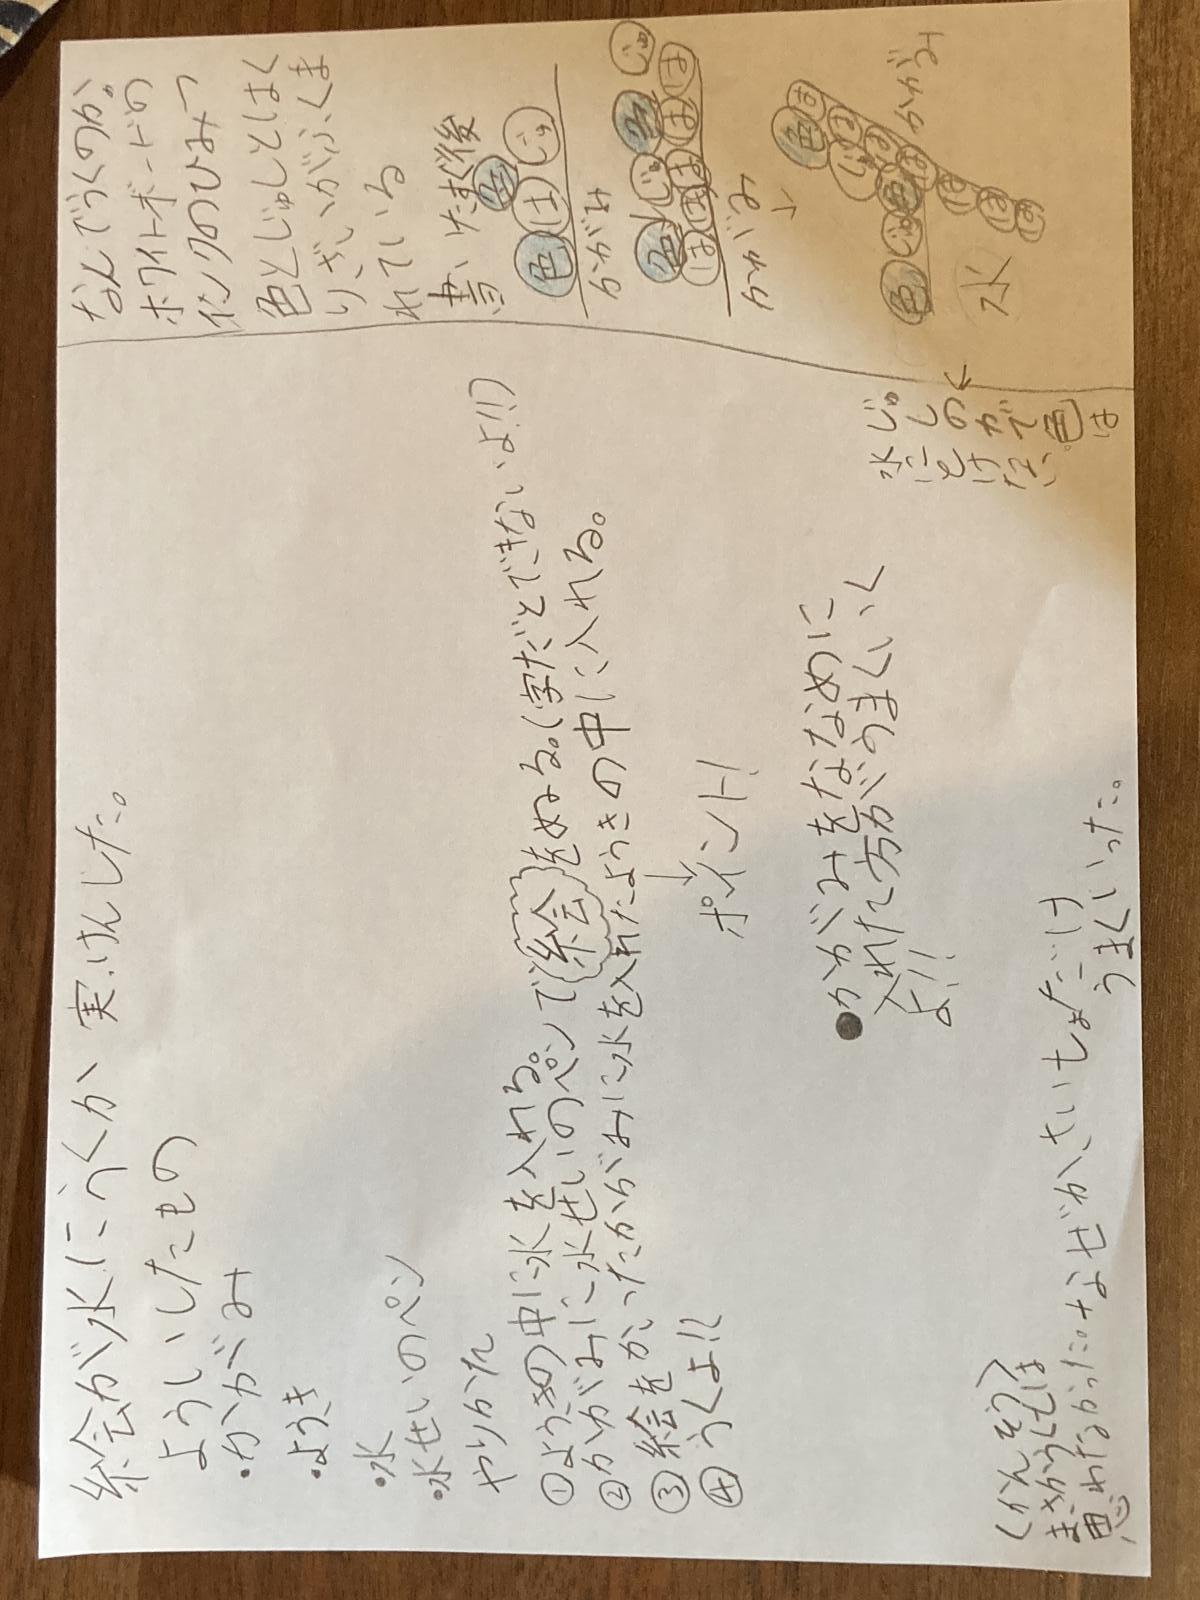 絵が水にうくか 実けんした。
よういしたもの
・かがみ
・ようき
・水
・水せいのペン
やりかた
①ようきの中に水を入れる。
②かがみに水せいのペンで絵をぬる。(字だとできないよ!!)
③絵をかいたかがみに水を入れたようきの中に入れる。
④うくよ!!
↓
ポイント!
●かがみをななめに
入れた方がうまくいく
よ!!
(かんそう)
まさかうくとは
思わなかった。+なぜかさいしょだけ
うまくいった。
なんでうくのか。
ホワイトボードの
インクのひみつ
色とじゅしとはく
りざいがふくま
れている
書いたすぐ後
色 は 色 じゅ
かがみ
色 じゅ 色 じゅ
は は は は は
かがみ
↓
色 は は は は は は は
じゅ 色 じゅ 色
かがみ
水
←
じゅしの力で色は
水にとけない。